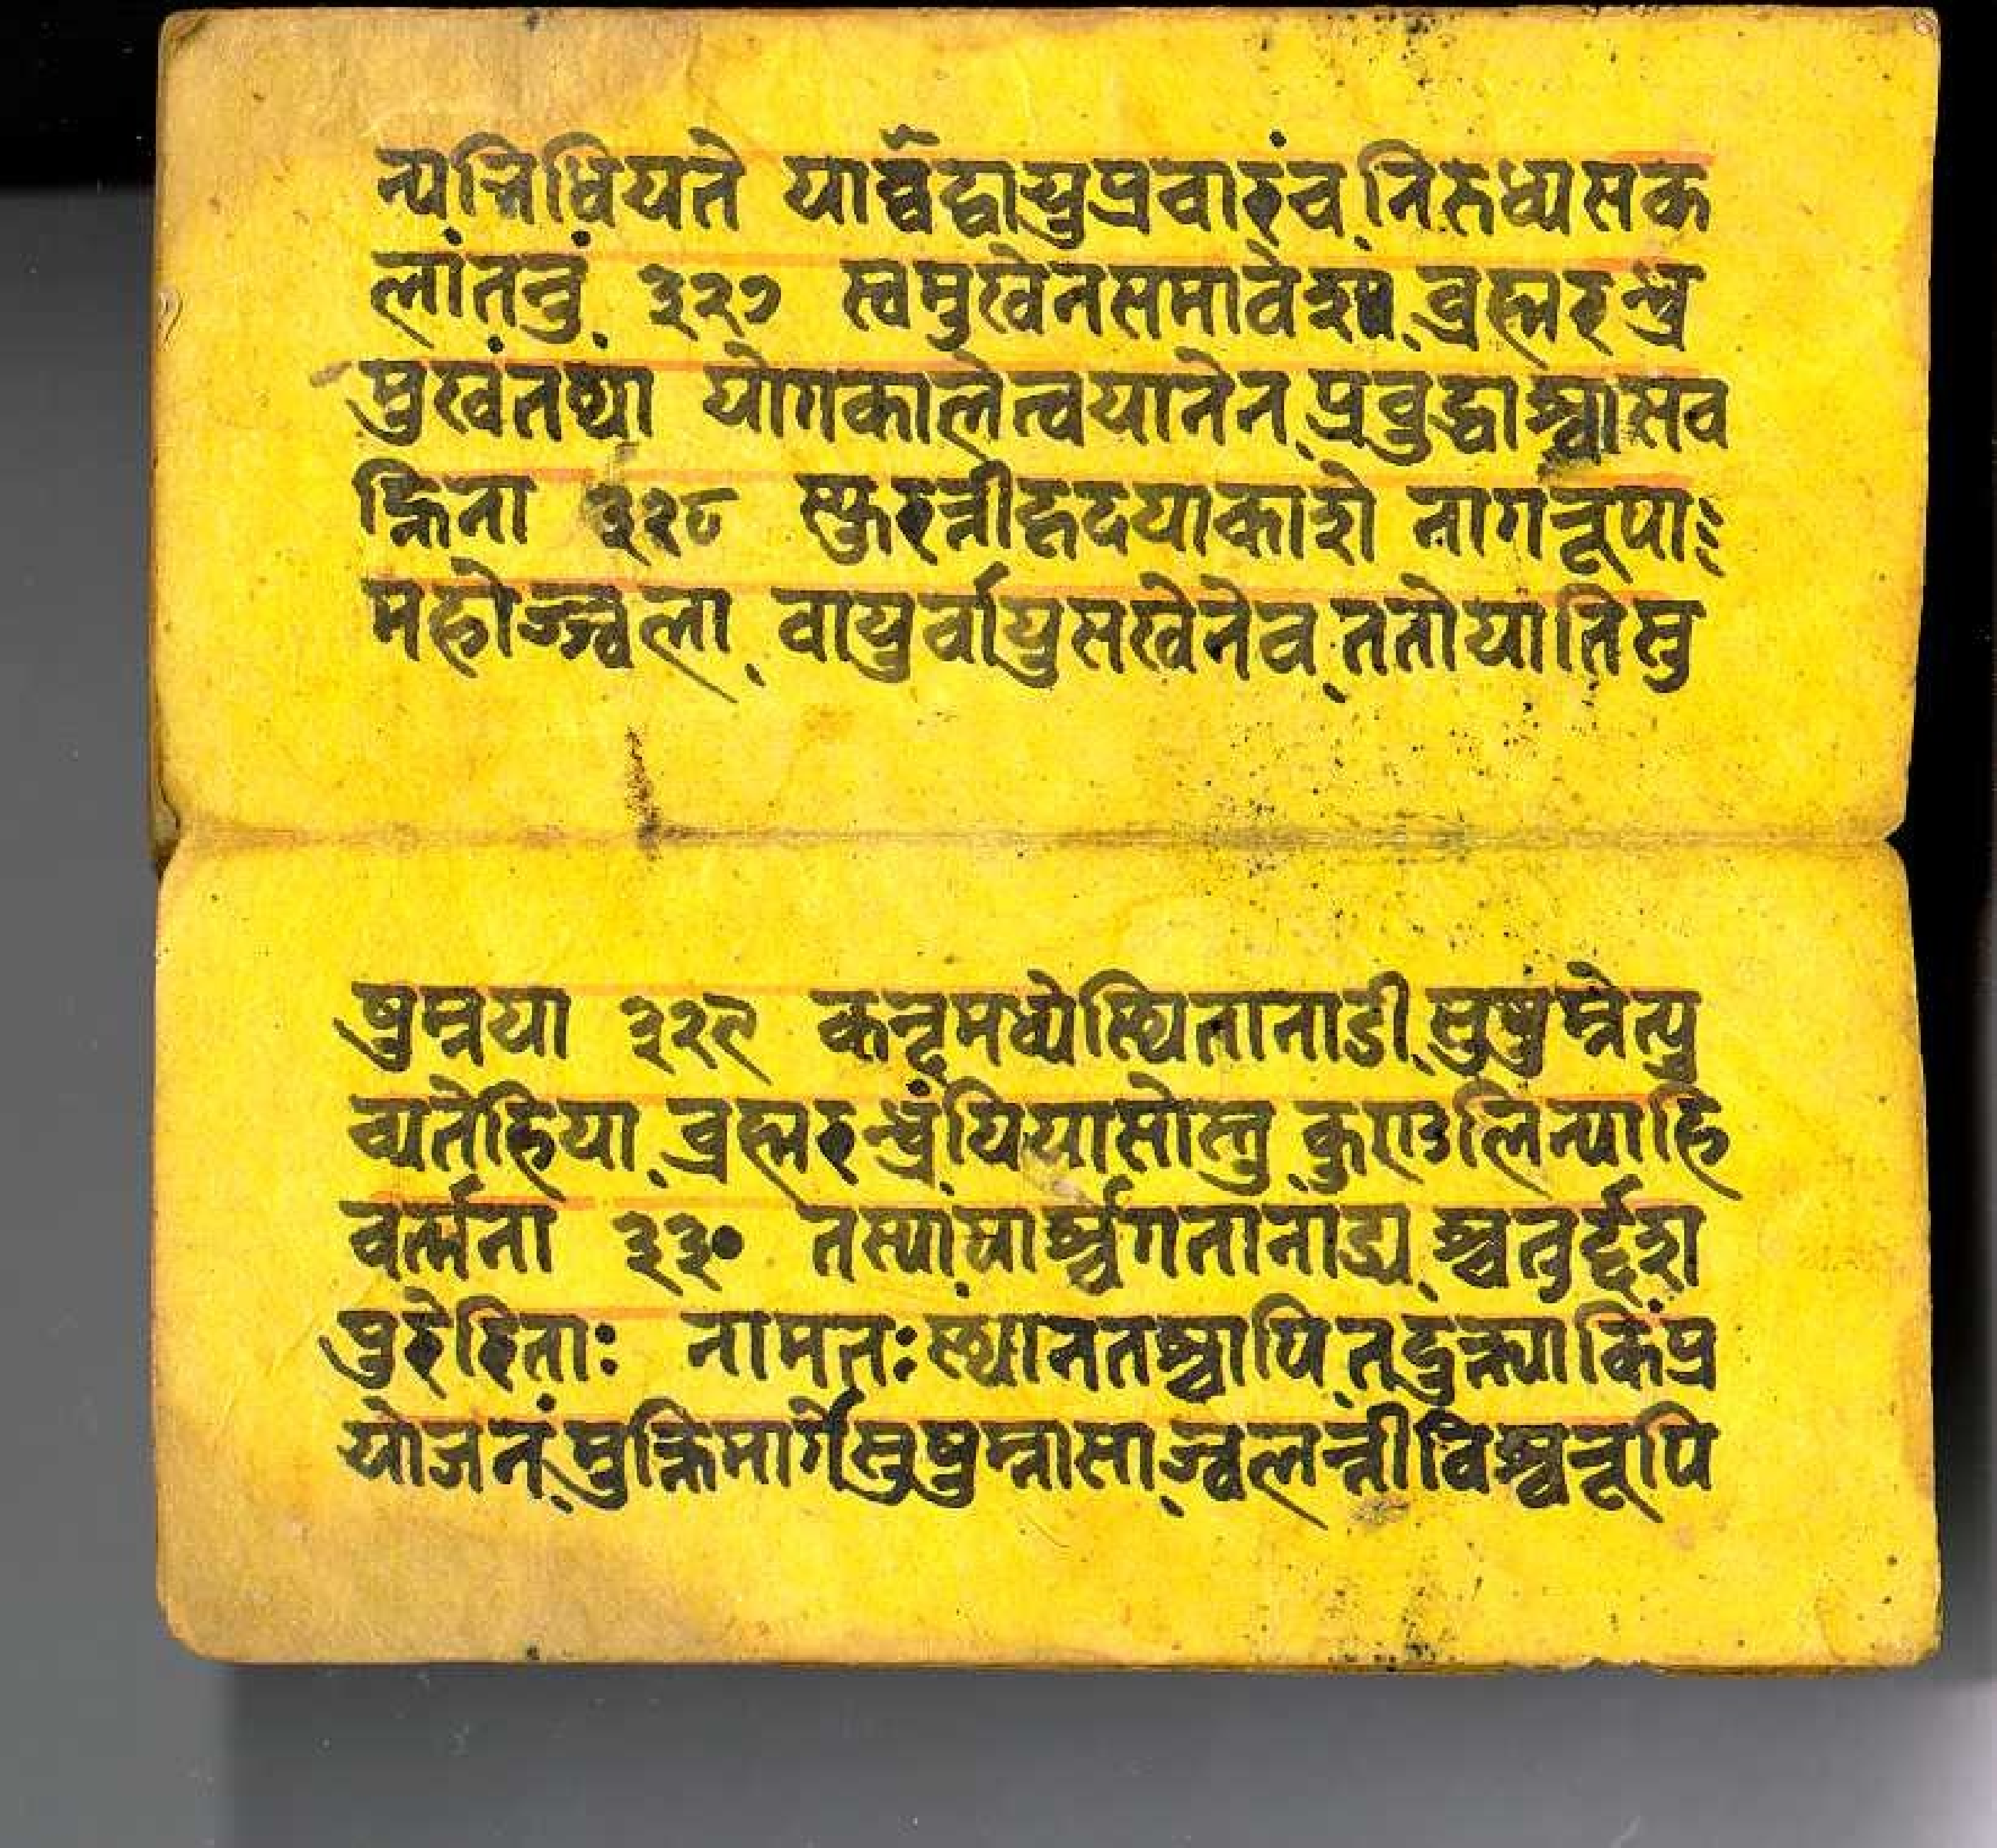 न्यन्निधियते यार्श्वद्वायुप्रवारंच निरुध्यसक
लांतनुं ३२७ स्वमुखेनसमावेश्य ब्रह्मरन्ध्र
मुखंतथा योगकालेत्वयानेन प्रबुद्धाश्वासव
ह्निना ३२८ स्फुरन्तीहृदयाकाशे नागरूपा
महोज्ज्वला वायुर्वायुसखेनेव ततोयातिसु
षुम्नया ३२९ कन्दमध्येस्थितानाडी सुषुम्नेत्यु
च्यतेहिया ब्रह्मरन्ध्रंयियासोस्तु कुण्डलिन्याहि
वर्त्मना ३३० तस्यापार्श्वगतानाड्य श्चतुर्द्दश
पुरेरिताः नामतःस्थानतश्चापि तदुक्त्याकिंप्र
योजनं मुक्तिमार्गेसुषुम्नासा ज्वलन्तीविश्वरूपि